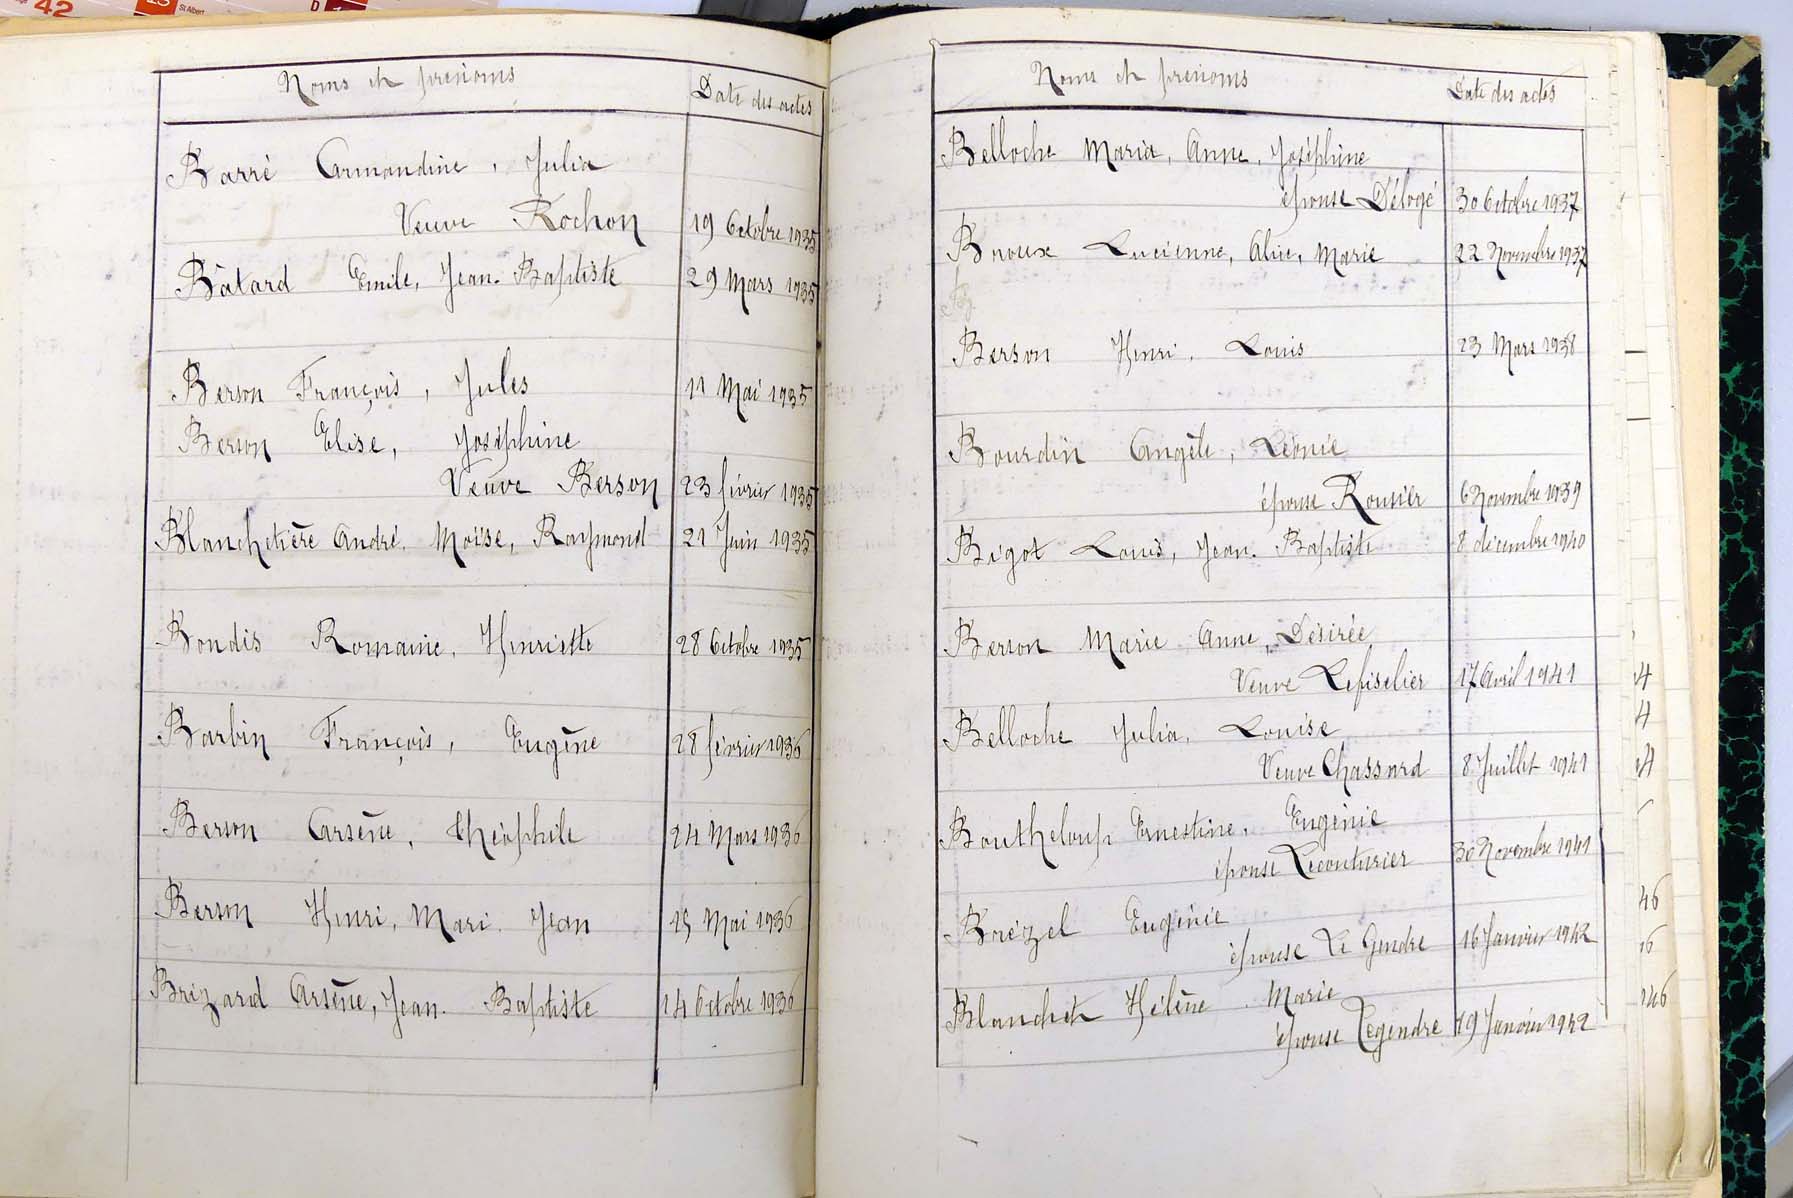 42
13
St Albert
D
Noms et prénoms Date des actes
Barré Armandine, Julia
Veuve Rochon 19 Octobre 1935
Bâtard Emile, Jean-Baptiste 29 Mars 1935
Berson François, Jules 11 Mai 1935
Berson Elise, Joséphine
Veuve Berson 23 février 1935
Blanchetière André, Moïse, Raymond 21 Juin 1935
Bondis Romaine, Henriette 28 Octobre 1935
Barbin François, Eugène 28 février 1936
Berson Arsène, Théophile 24 Mars 1936
Berson Henri, Mari Jean 15 Mai 1936
Brizard Arsène, Jean-Baptiste 14 Octobre 1936
Noms et prénoms Date des actes
Belloche Maria, Anne, Joséphine
épouse Délogé 30 Octobre 1937
Broux Lucienne, Alice, Marie 22 Novembre 1937
Berson Henri, Louis 23 Mars 1938
Bourdin Angèle, Léonie
épouse Rousier 6 Novembre 1939
Bigot Louis, Jean-Baptiste 8 décembre 1940
Berson Marie Anne, Désirée
Veuve Lefiselier 17 Avril 1941
Belloche Julia, Louise
Veuve Chassard 8 Juillet 1941
Boutheloup Ernestine, Eugénie
épouse Lecouturier 30 Novembre 1941
Brézel Eugénie
épouse Le Gendre 16 Janvier 1942
Blanchet Hélène Marie
épouse Legendre 19 Janvier 1942
4
4
4
46
6
146